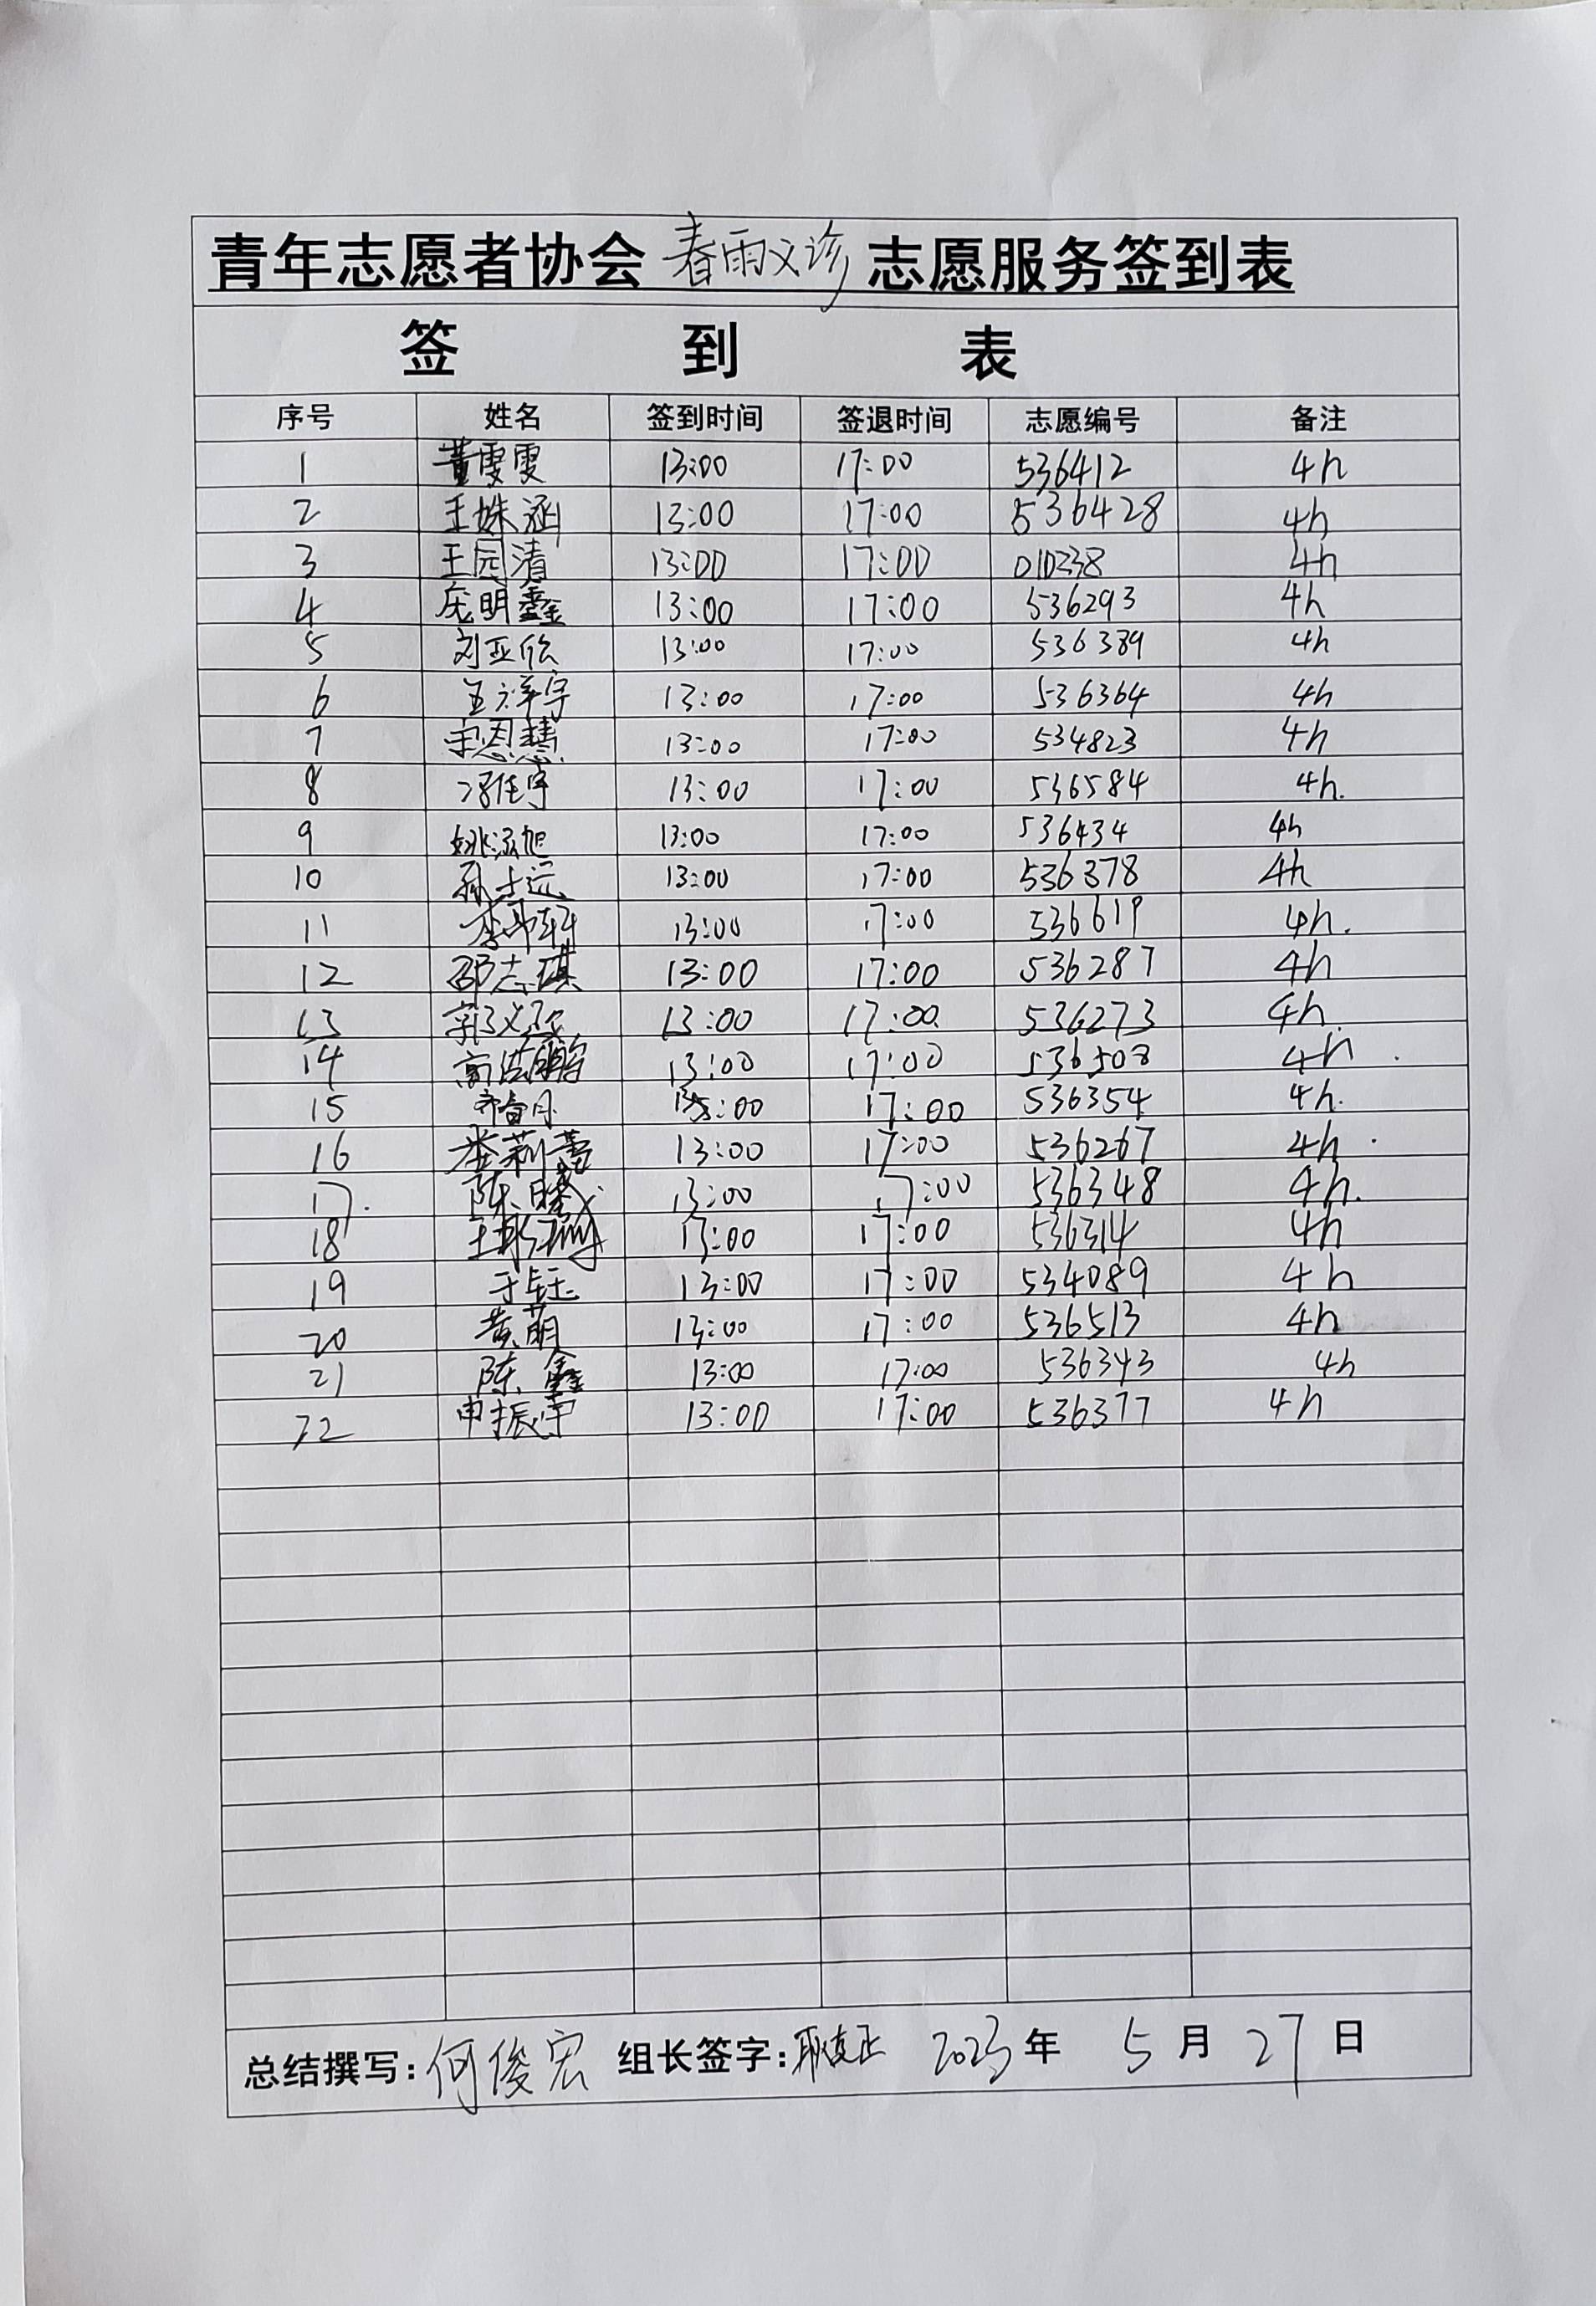 青年志愿者协会 春雨义诊 志愿服务签到表
签 到 表
序号 姓名 签到时间 签退时间 志愿编号 备注
1 董雯雯 13:00 17:00 536412 4h
2 王姝涵 13:00 17:00 536428 4h
3 王园清 13:00 17:00 010238 4h
4 庞明鑫 13:00 17:00 536293 4h
5 刘亚欣 13:00 17:00 536389 4h
6 王祥宇 13:00 17:00 536364 4h
7 宋恩慧 13:00 17:00 534823 4h
8 冯佳宇 13:00 17:00 536584 4h.
9 姚泓旭 13:00 17:00 536434 4h
10 孙士远 13:00 17:00 536378 4h
11 李 13:00 17:00 536619 4h.
12 邵志琪 13:00 17:00 536287 4h
13 郭义 13:00 17:00 536273 4h
14 高 13:00 17:00 536508 4h.
15 13:00 17:00 536354 4h.
16 莉 13:00 17:00 536267 4h.
17. 陈曦 13:00 17:00 536348 4h.
18 王 13:00 17:00 536314 4h
19 于钰 13:00 17:00 534089 4h
20 黄萌 13:00 17:00 536513 4h
21 陈鑫 13:00 17:00 536343 4h
22 申振宇 13:00 17:00 536377 4h
总结撰写:何俊宏 组长签字:耿支正 2023年 5月27日